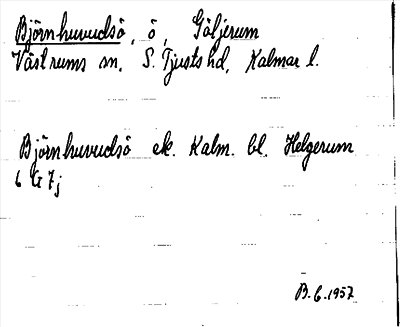 Björnhuvudsö, ö, Göljerum
Västrums sn. S. Tjusts hd, Kalmar l.
Björnhuvudsö ek. Kalm. bl. Helgerum
6 G 7 j
B. G. 1957